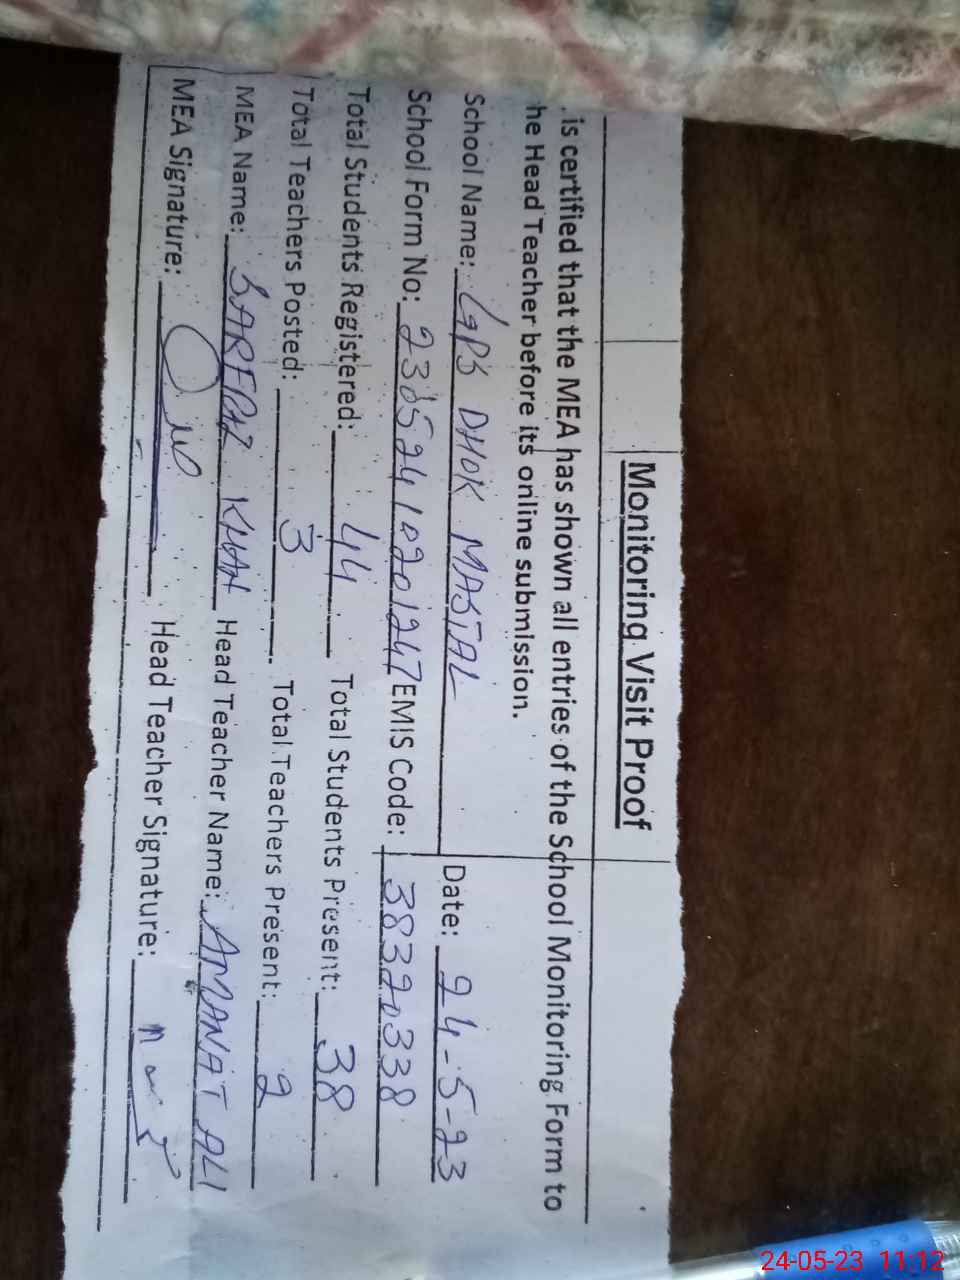 Monitoring Visit Proof
is certified that the MEA has shown all entries of the School Monitoring Form to
he Head Teacher before its online submission.
School Name: GPS DHOK MASTAL Date: 24-5-23
School Form No: 23052410201247 EMIS Code: 38320338
Total Students Registered: 44 Total Students Present: 38
Total Teachers Posted: 3 Total Teachers Present: 2
MEA Name: SARFRAZ KHAN Head Teacher Name: AMANAT ALI
MEA Signature: Head Teacher Signature:
24-05-23 11:12